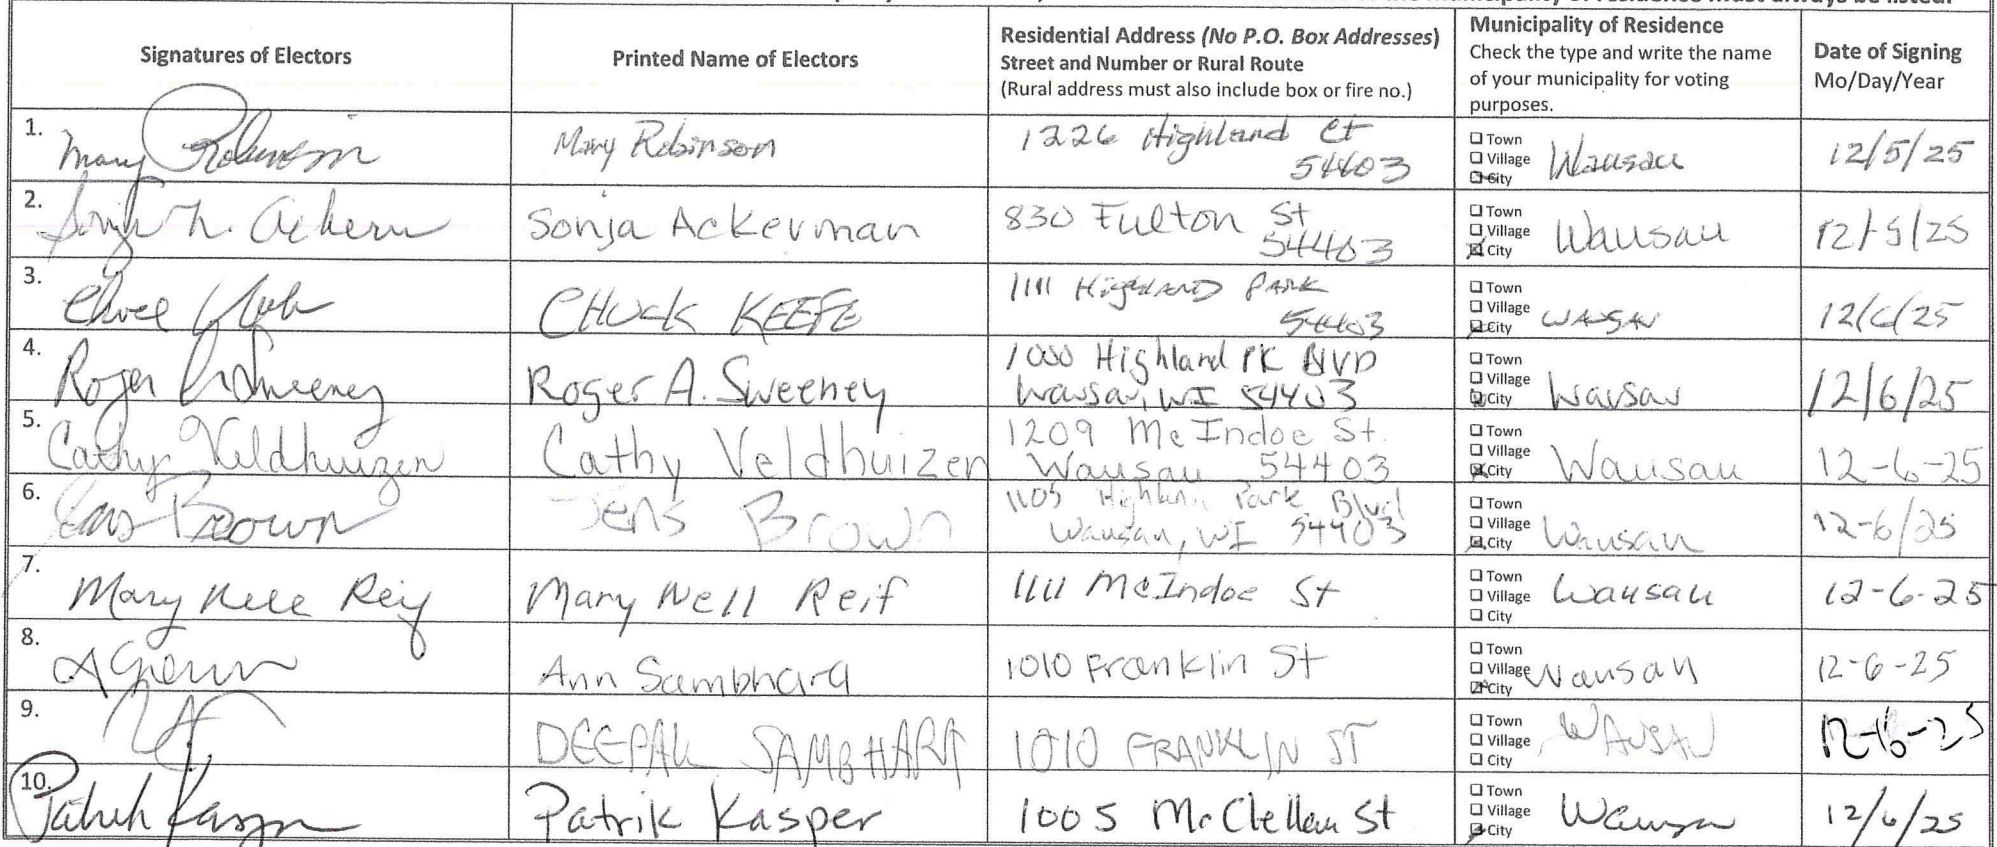 the municipality of residence must always be listed.
Signatures of Electors
Printed Name of Electors
Residential Address (No P.O. Box Addresses)
Street and Number or Rural Route
(Rural address must also include box or fire no.)
Municipality of Residence
Check the type and write the name
of your municipality for voting
purposes.
Date of Signing
Mo/Day/Year
1.
Mary Robinson
Mary Robinson
1226 Highland Ct
54403
Town
Village
City
Wausau
12/5/25
2.
Sonja Ackerman
830 Fulton St
54403
Town
Village
City
Wausau
12/5/25
3.
CHUCK KEEFE
1111 HIGHLAND PARK
54403
Town
Village
City
WAUSAU
12/6/25
4.
Roger A Sweeney
Roger A. Sweeney
1000 Highland PK BLVD
Wausau, WI 54403
Town
Village
City
Wausau
12/6/25
5.
Cathy Veldhuizen
Cathy Veldhuizen
1209 McIndoe St.
Wausau 54403
Town
Village
City
Wausau
12-6-25
6.
Jens Brown
Jens Brown
1105 Highland Park Blvd
Wausau, WI 54403
Town
Village
City
Wausau
12-6/25
7.
Mary Nell Reif
Mary Nell Reif
1111 McIndoe St
Town
Village
City
Wausau
12-6-25
8.
Ann Sambhara
1010 Franklin St
Town
Village
City
Wausau
12-6-25
9.
DEEPAK SAMBHARA
1010 FRANKLIN ST
Town
Village
City
WAUSAU
12-6-25
10.
Patrik Kasper
Patrik Kasper
1005 McClellan St
Town
Village
City
Wausau
12/6/25